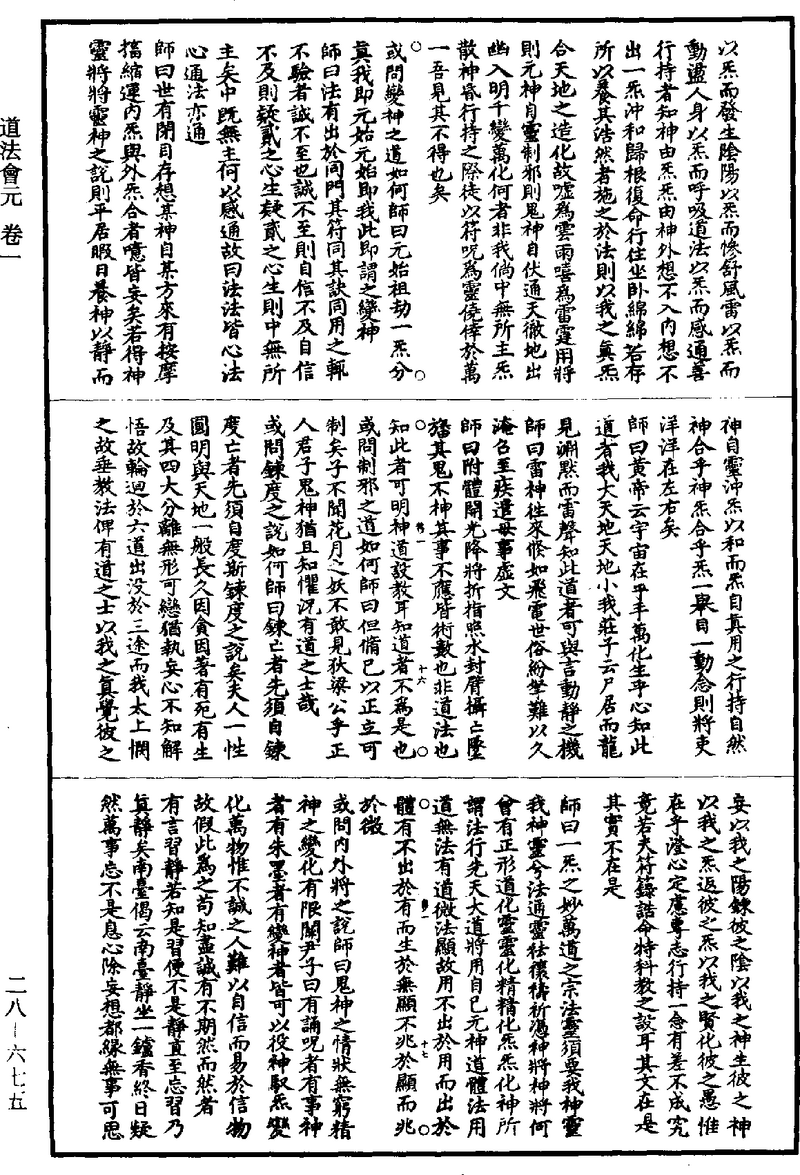 以炁而發生陰陽以炁而慘舒風雷以炁而
動盪人身以炁而呼吸道法以炁而感通善
行持者知神由炁炁由神外想不入內想不
出一炁沖和歸根復命行住坐臥綿綿若存
所以養其浩然者施之於法則以我之真炁
合天地之造化故噓為雲雨嘻為雷霆用將
則元神自靈制邪則鬼神自伏通天徹地出
幽入明千變萬化何者非我倘中無所主炁
散神昏行持之際徒以符呪為靈僥倖於萬
一吾見其不得也矣
或問變神之道如何師曰元始祖劫一炁分
真我即元始元始即我此即謂之變神
師曰法有出於同門其符同其訣同用之輒
不驗者誠不至也誠不至則自信不及自信
不及則疑貳之心生疑貳之心生則中無所
主矣中既無主何以感通故曰法法皆心法
心通法亦通
師曰世有閉目存想某神自某方來有按摩
擂縮運內炁與外炁合者噫皆妄矣若得神
靈將將靈神之說則平居暇日養神以靜而
神自靈沖炁以和而炁自真用之行持自然
神合乎神炁合乎炁一舉目一動念則將吏
洋洋在左右矣
師曰黃帝云宇宙在乎手萬化生乎心知此
道者我大天地天地小我莊子云尸居而龍
見淵默而雷聲知此道者可與言動靜之機
師曰雷神往來倏如飛電世俗紛拏難以久
淹召至疾遣毋事虛文
師曰附體開光降將折指照水封臂攝亡墜
旛其鬼不神其事不應皆術數也非道法也
知此者可明神道設教耳知道者不為是也
或問制邪之道如何師曰但脩己以正立可
制矣子不聞花月之妖不敢見狄梁公乎正
人君子鬼神猶且知懼況有道之士哉
或問鍊度之說如何師曰鍊亡者先須自鍊
度亡者先須自度斯鍊度之說矣夫人一性
圓明與天地一般長久因貪因著有死有生
及其四大分離無形可戀猶執妄心不知解
悟故輪迴於六道出沒於三途而我太上憫
之故垂教法俾有道之士以我之真覺彼之
妄以我之陽鍊彼之陰以我之神生彼之神
以我之炁返彼之炁以我之賢化彼之愚惟
在乎澄心定慮專志行持一念有差不成究
竟若夫符籙誥命特科教之設耳其文在是
其實不在是
師曰一炁之妙萬道之宗法靈須要我神靈
我神靈兮法通靈祛禳禱祈憑神將神將何
曾有正形道化靈靈化精精化炁炁化神所
謂法行先天大道將用自己元神道體法用
道無法有道微法顯故用不出於用而出於
體有不出於有而生於無顯不兆於顯而兆
於微
或問內外將之說師曰鬼神之情狀無窮精
神之變化有限關尹子曰有誦呪者有事神
者有朱墨者有變神者皆可以役神馭炁變
化萬物惟不誠之人難以自信而易於信物
故假此為之苟知盡誠有不期然而然者
有言習靜若知是習便不是靜直至忘習乃
真靜矣南臺偈云南臺靜坐一鑪香終日凝
然萬事忘不是息心除妄想都緣無事可思
道法會元 卷一
二八－六七五
十六
十七